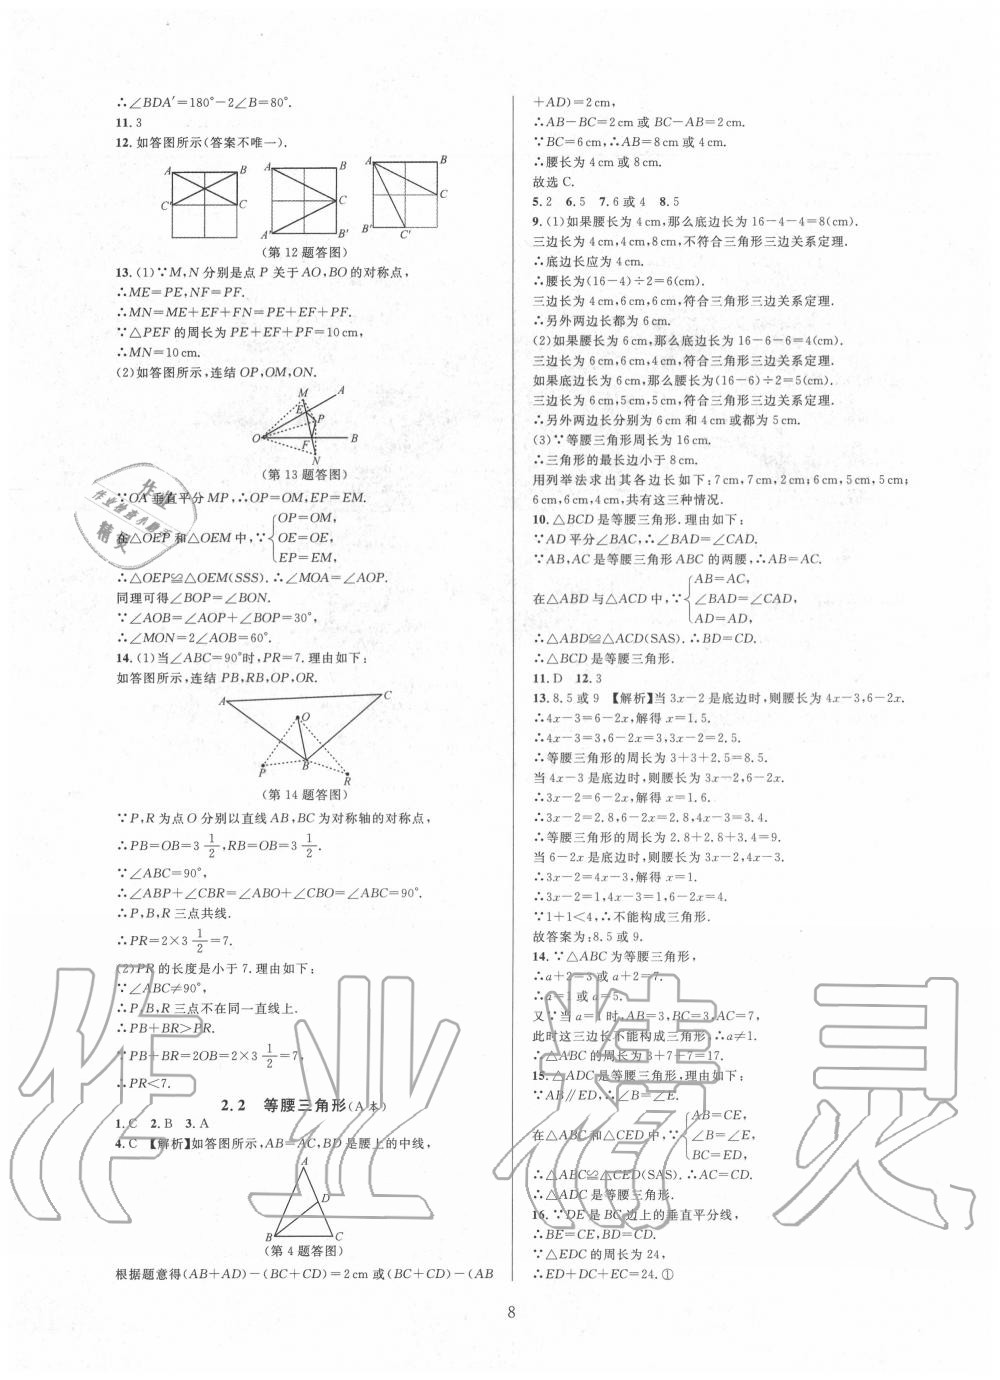 ∴∠BDA′=180°-2∠B=80°.
11.3
12.如答图所示(答案不唯一).
A B C′ C
A B C A′ B′
A B C C′
(第12题答图)
13.(1)∵M,N分别是点P关于AO,BO的对称点,
∴ME=PE,NF=PF.
∴MN=ME+EF+FN=PE+EF+PF.
∵△PEF的周长为PE+EF+PF=10cm,
∴MN=10cm.
(2)如答图所示,连结OP,OM,ON.
M A E P O F B N
(第13题答图)
∵OA垂直平分MP,∴OP=OM,EP=EM.
在△OEP和△OEM中,∵{OP=OM,
OE=OE,
EP=EM.
∴△OEP≌△OEM(SSS).∴∠MOA=∠AOP.
同理可得∠BOP=∠BON.
∵∠AOB=∠AOP+∠BOP=30°,
∴∠MON=2∠AOB=60°.
14.(1)当∠ABC=90°时,PR=7.理由如下:
如答图所示,连结PB,RB,OP,OR.
A C O P B R
(第14题答图)
∵P,R为点O分别以直线AB,BC为对称轴的对称点,
∴PB=OB=3 1/2,RB=OB=3 1/2.
∵∠ABC=90°,
∴∠ABP+∠CBR=∠ABO+∠CBO=∠ABC=90°.
∴P,B,R三点共线.
∴PR=2×3 1/2=7.
(2)PR的长度是小于7.理由如下:
∵∠ABC≠90°,
∴P,B,R三点不在同一直线上.
∴PB+BR>PR.
∵PB+BR=2OB=2×3 1/2=7,
∴PR<7.
2.2 等腰三角形(A本)
1.C 2.B 3.A
4.C 【解析】如答图所示,AB=AC,BD是腰上的中线,
A D B C
(第4题答图)
根据题意得(AB+AD)-(BC+CD)=2cm或(BC+CD)-(AB
+AD)=2cm,
∴AB-BC=2cm或BC-AB=2cm.
∵BC=6cm,∴AB=8cm或4cm.
∴腰长为4cm或8cm.
故选C.
5.2 6.5 7.6或4 8.5
9.(1)如果腰长为4cm,那么底边长为16-4-4=8(cm).
三边长为4cm,4cm,8cm,不符合三角形三边关系定理.
∴底边长应为4cm.
∴腰长为(16-4)÷2=6(cm).
三边长为4cm,6cm,6cm,符合三角形三边关系定理.
∴另外两边长都为6cm.
(2)如果腰长为6cm,那么底边长为16-6-6=4(cm).
三边长为6cm,6cm,4cm,符合三角形三边关系定理.
如果底边长为6cm,那么腰长为(16-6)÷2=5(cm).
三边长为6cm,5cm,5cm,符合三角形三边关系定理.
∴另外两边长分别为6cm和4cm或都为5cm.
(3)∵等腰三角形周长为16cm.
∴三角形的最长边小于8cm.
用列举法求出其各边长如下:7cm,7cm,2cm;6cm,5cm,5cm;
6cm,6cm,4cm,共有这三种情况.
10.△BCD是等腰三角形.理由如下:
∵AD平分∠BAC,∴∠BAD=∠CAD.
∵AB,AC是等腰三角形ABC的两腰,∴AB=AC.
在△ABD与△ACD中,∵{AB=AC,
∠BAD=∠CAD,
AD=AD,
∴△ABD≌△ACD(SAS).∴BD=CD.
∴△BCD是等腰三角形.
11.D 12.3
13.8.5或9 【解析】当3x-2是底边时,则腰长为4x-3,6-2x.
∴4x-3=6-2x,解得x=1.5.
∴4x-3=3,6-2x=3,3x-2=2.5.
∴等腰三角形的周长为3+3+2.5=8.5.
当4x-3是底边时,则腰长为3x-2,6-2x.
∴3x-2=6-2x,解得x=1.6.
∴3x-2=2.8,6-2x=2.8,4x-3=3.4.
∴等腰三角形的周长为2.8+2.8+3.4=9.
当6-2x是底边时,则腰长为3x-2,4x-3.
∴3x-2=4x-3,解得x=1.
∴3x-2=1,4x-3=1,6-2x=4.
∵1+1<4,∴不能构成三角形.
故答案为:8.5或9.
14.∵△ABC为等腰三角形,
∴a+2=3或a+2=7.
∴a=1或a=5.
又∵当a=1时,AB=3,BC=3,AC=7,
此时这三边长不能构成三角形,∴a≠1.
∴△ABC的周长为3+7+7=17.
15.△ADC是等腰三角形.理由如下:
∵AB∥ED,∴∠B=∠E.
在△ABC和△CED中,∵{AB=CE,
∠B=∠E,
BC=ED,
∴△ABC≌△CED(SAS).∴AC=CD.
∴△ADC是等腰三角形.
16.∵DE是BC边上的垂直平分线,
∴BE=CE,BD=CD.
∵△EDC的周长为24,
∴ED+DC+EC=24.①
8
作业精灵
作业
作业检查小助手
精灵